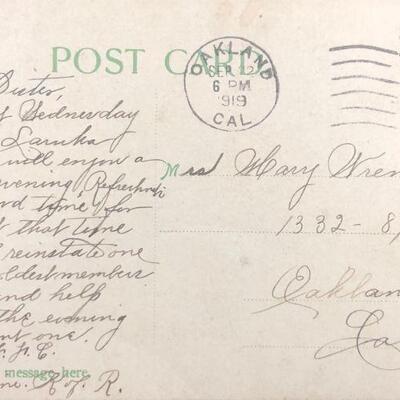 POST CAR
OAKLAND
SEP 12
6 PM
1919
CAL.
Sister,
Wednesday
Laruka
will enjoy a
evening Refreshm
time for
that time
reinstate one
oldest member
and help
the evening
one.
K of R.
Mrs Mary Wren
1332-8
Oakland
Ca
message here.